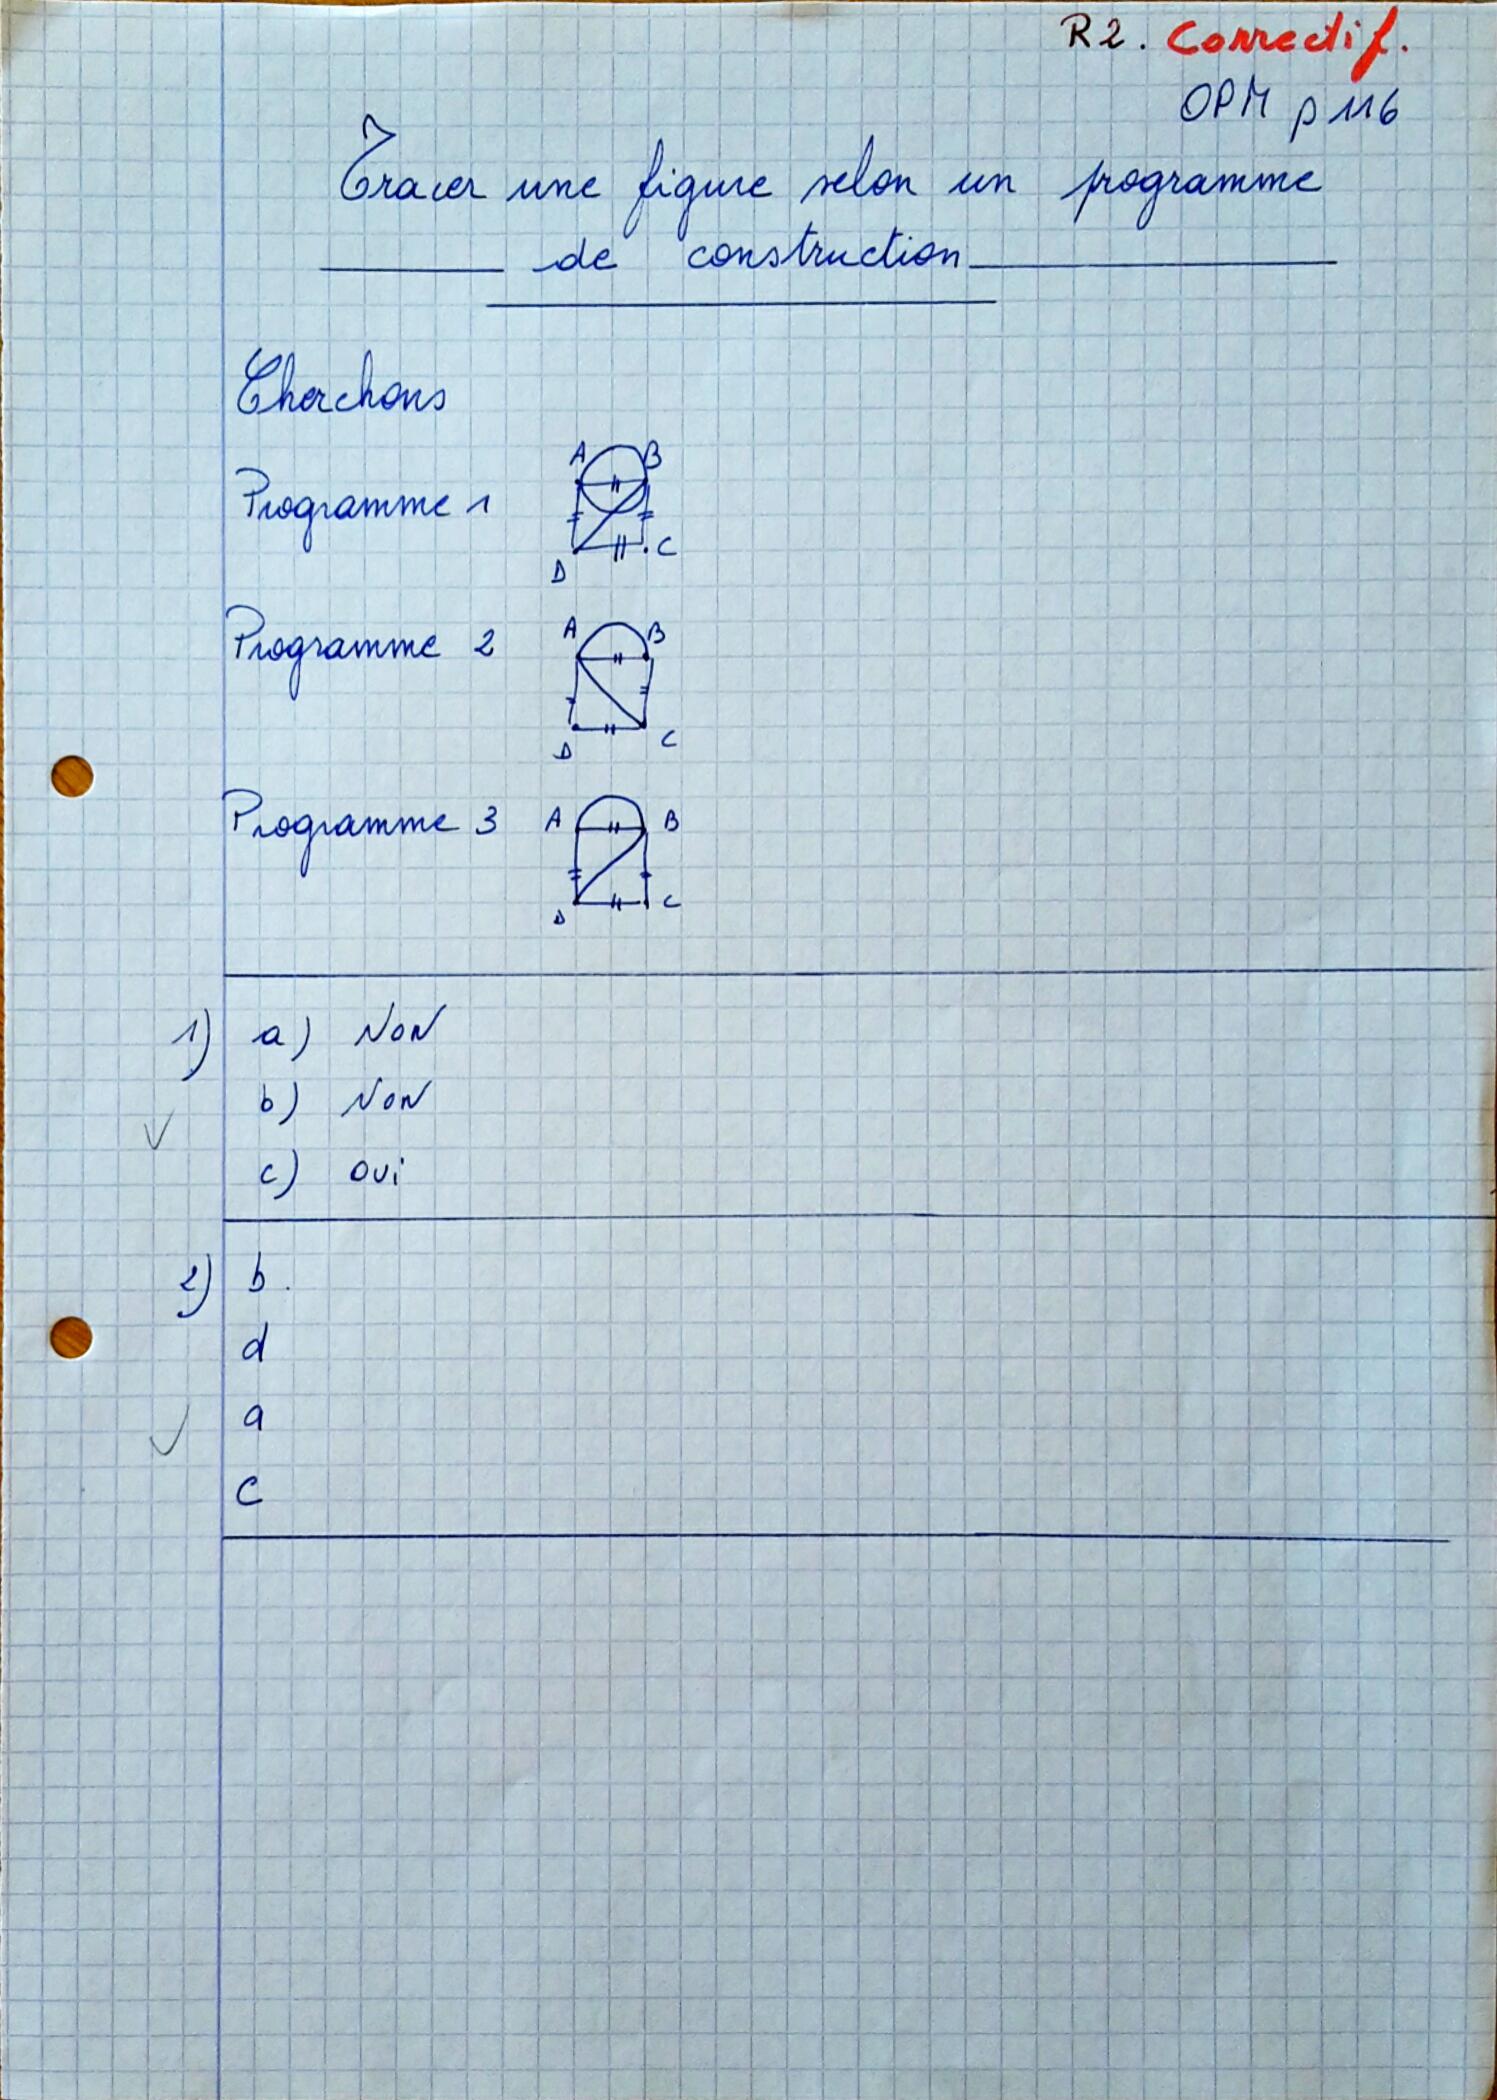 R2. Correctif.
OPM p 116
Tracer une figure selon un programme
de construction
Cherchons
A B
Programme 1
C
D
A B
Programme 2
D C
Programme 3 A B
D C
1) a) NON
b) NON
c) OUi
2) b.
d
a
c